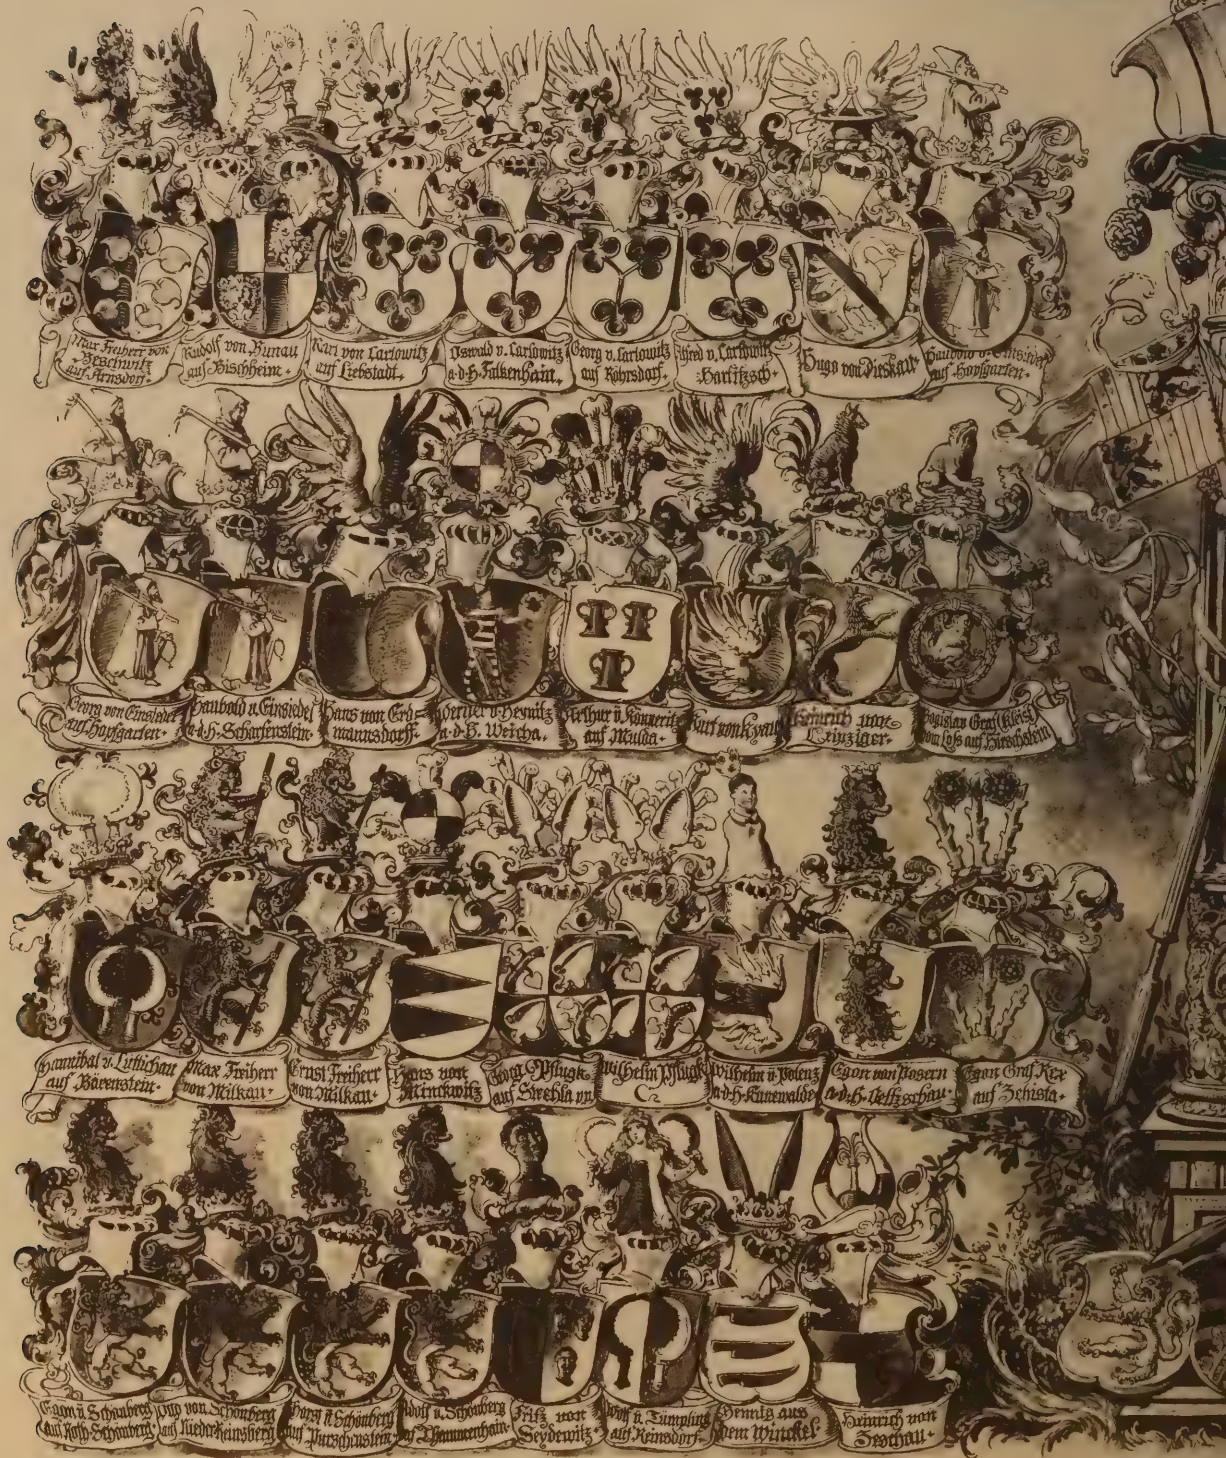 Max Freiherr von
Zeschwitz
auf Arnsdorf.
Rudolf von Bünau
auf Bischheim.
Karl von Carlowitz
auf Liebstadt.
Oswald v. Carlowitz
a.d.H. Falkenhain.
Georg v. Carlowitz
auf Röhrsdorf.
Alfred v. Carlowitz
Hartitzsch.
Hugo von Dieskau.
Haubold v. Einsiedel
auf Hopfgarten.
Georg von Einsiedel
auf Hopfgarten.
Haubold v. Einsiedel
a.d.H. Scharfenstein.
Hans von Erd=
mannsdorff.
Werner v. Heynitz
a.d.H. Weicha.
Arthur v. Könneritz
auf Mulda.
Kurt von Kyau
Heinrich von
Leipziger.
Bogislav Graf Kleist
vom Loss auf Hirschstein
Hannibal v. Lüttichau
auf Bärenstein.
Max Freiherr
von Milkau.
Ernst Freiherr
von Milkau.
Hans von
Minckwitz
Georg Pflugk
auf Strehla
Wilhelm Pflugk
Wilhelm v. Polenz
a.d.H. Kunewalde
Egon von Posern
a.d.H.
Egon Graf Rex
auf Zehista.
Egon v. Schönberg
auf Roth-Schönberg
von Schönberg
auf Niederreinsberg
Horst v. Schönberg
auf Purschenstein
Adolf v. Schönberg
auf Thammenhain
Fritz von
Seydewitz.
Wolf v. Tümpling
auf Reinsdorf.
Hennig aus
dem Winckel.
Heinrich von
Zeschau.